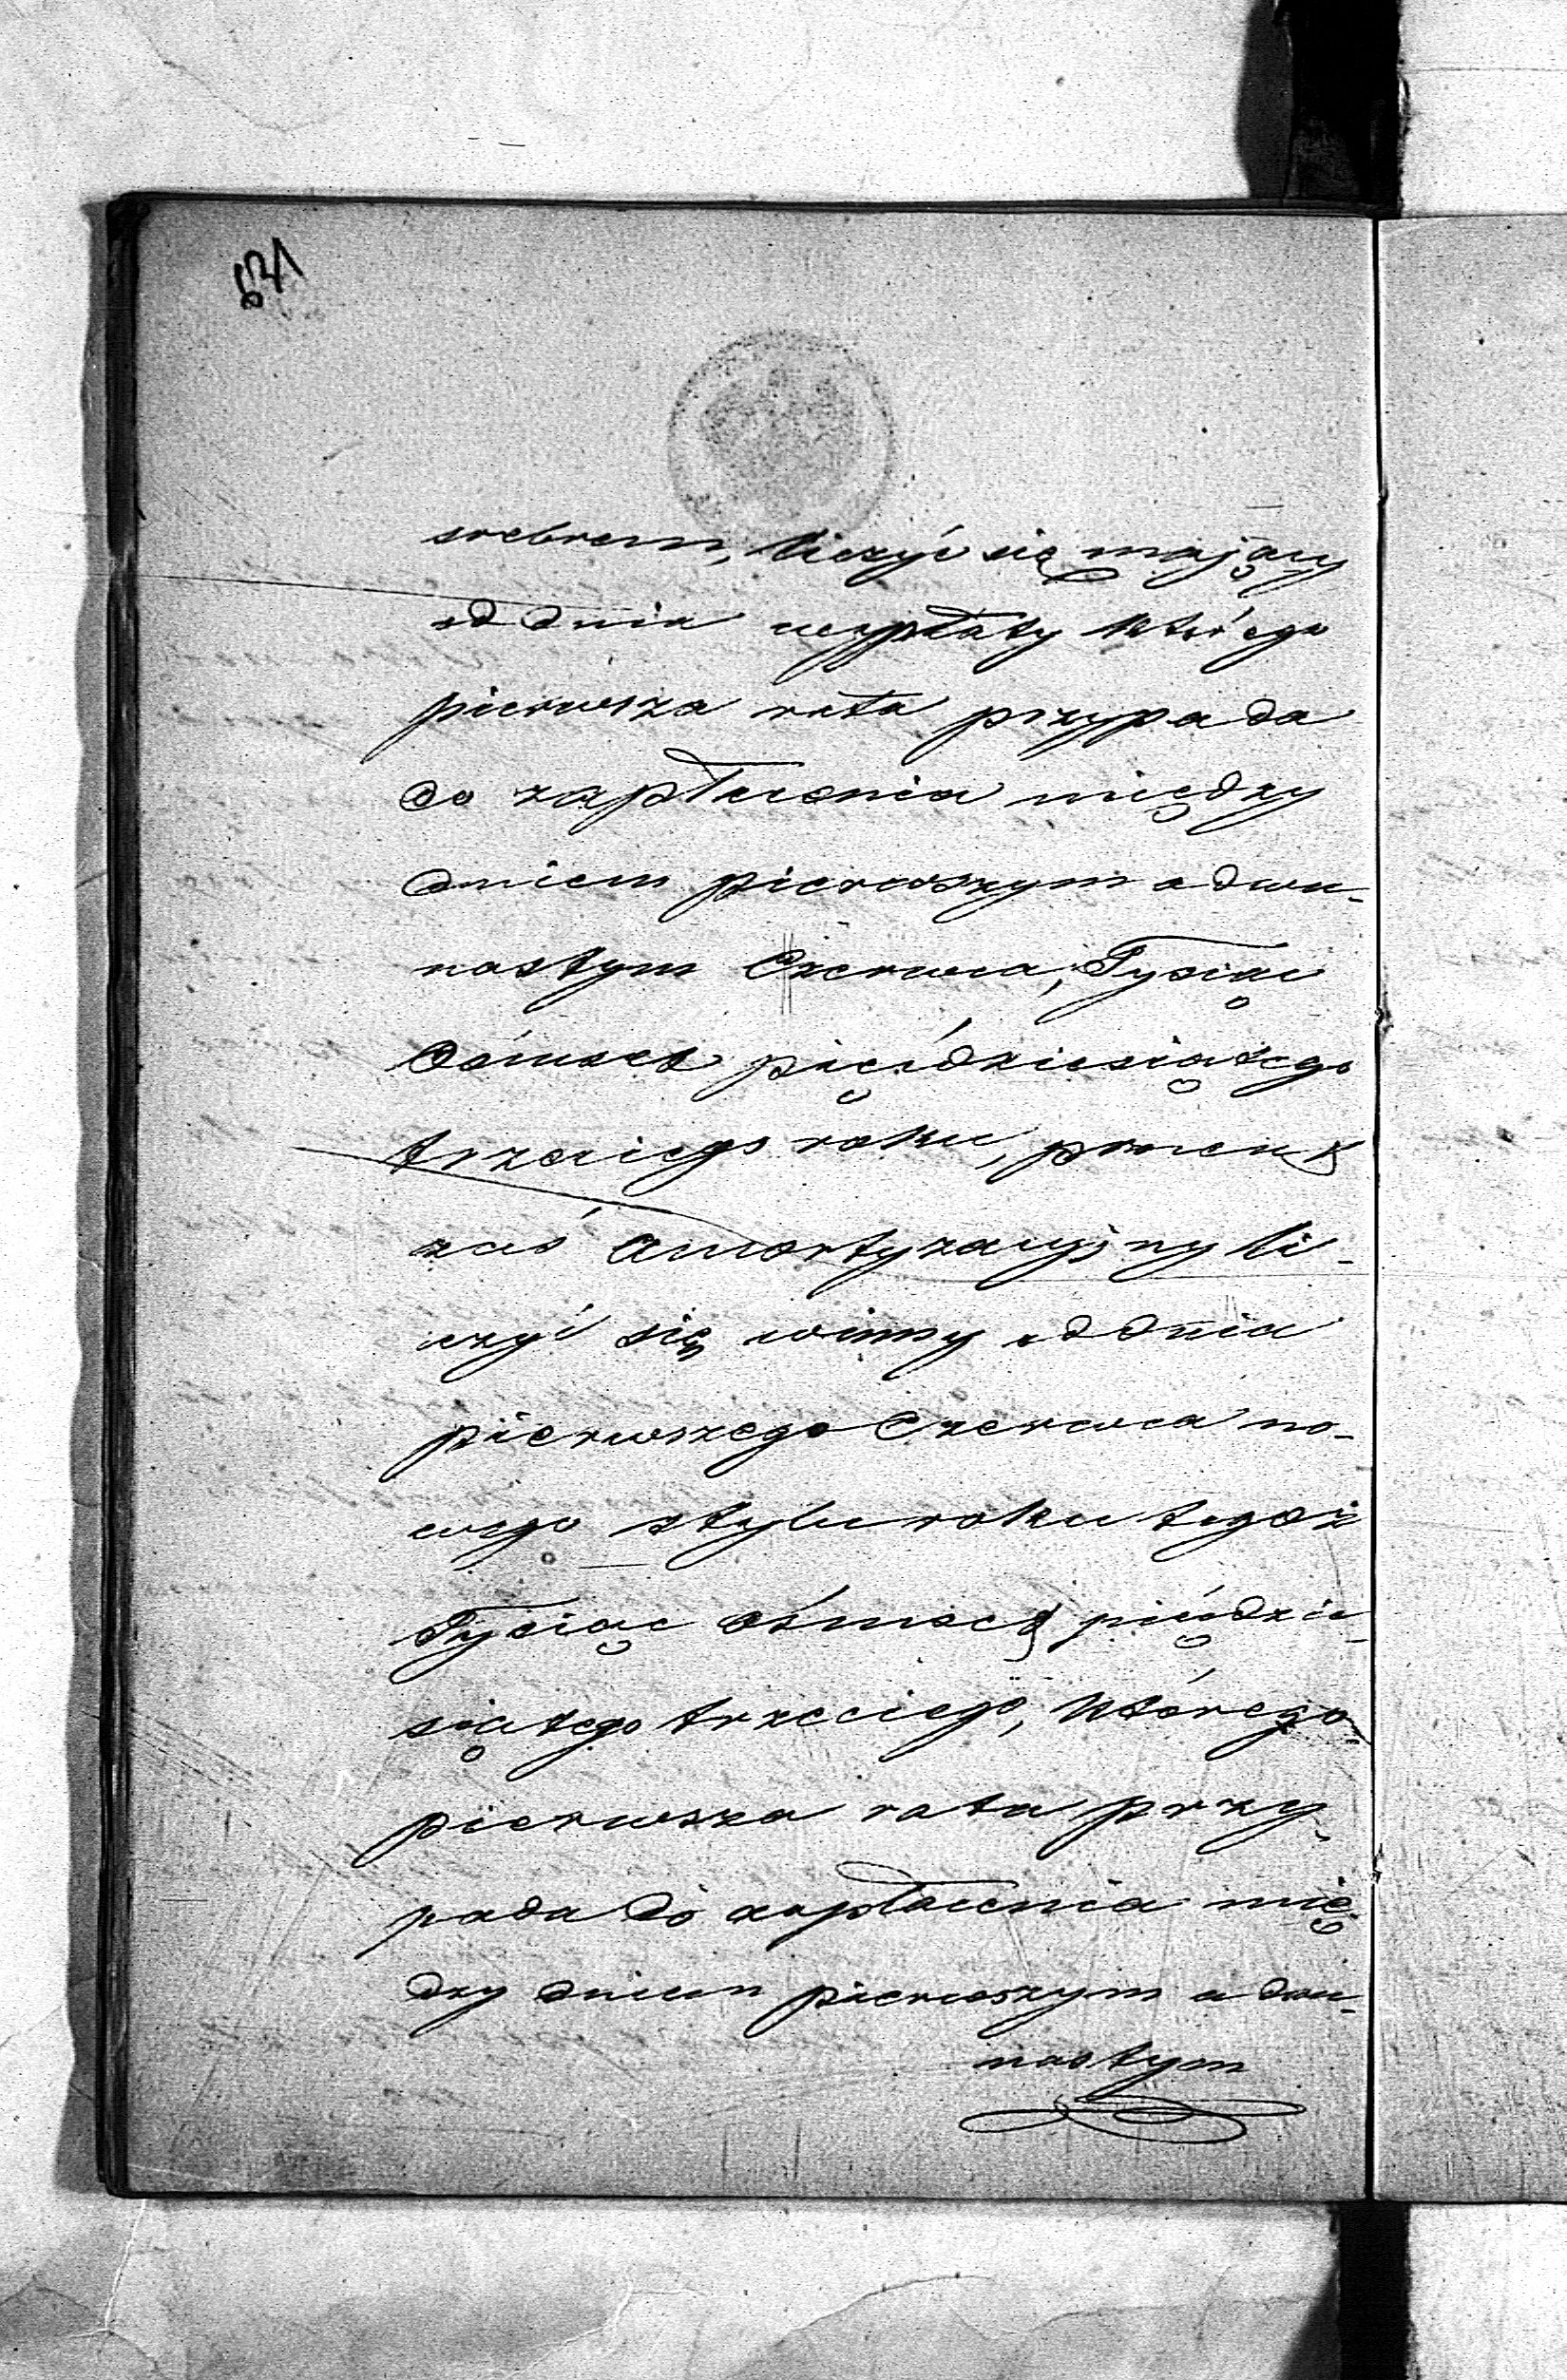 srebrem, liczyć się mający
od dnia wypłaty którego
pierwsza rata przypada
do zapłacenia między
dniem pierwszym a dwu-
nastym Czerwca, Tysiąc
Ośmset pięćdziesiątego
trzeciego roku, procent
zaś Amortyzacyjny li-
czyć się winny od dnia
pierwszego Czerwca no-
wego stylu roku tegoż
Tysiąc Ośmset pięćdzie-
siątego trzeciego, którego
pierwsza rata przy-
pada do zapłacenia mię-
dzy dniem pierwszym a dwu-
nastym